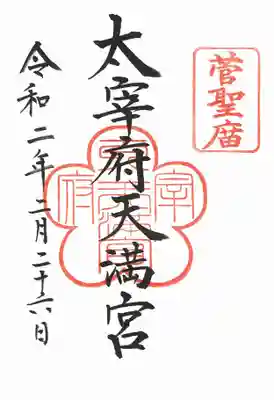 菅聖庿
太宰府天満宮
令和二年二月二十六日